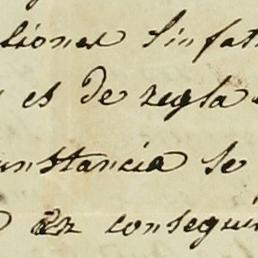 liones sinfat
es de regla
unstancia se
en consegui